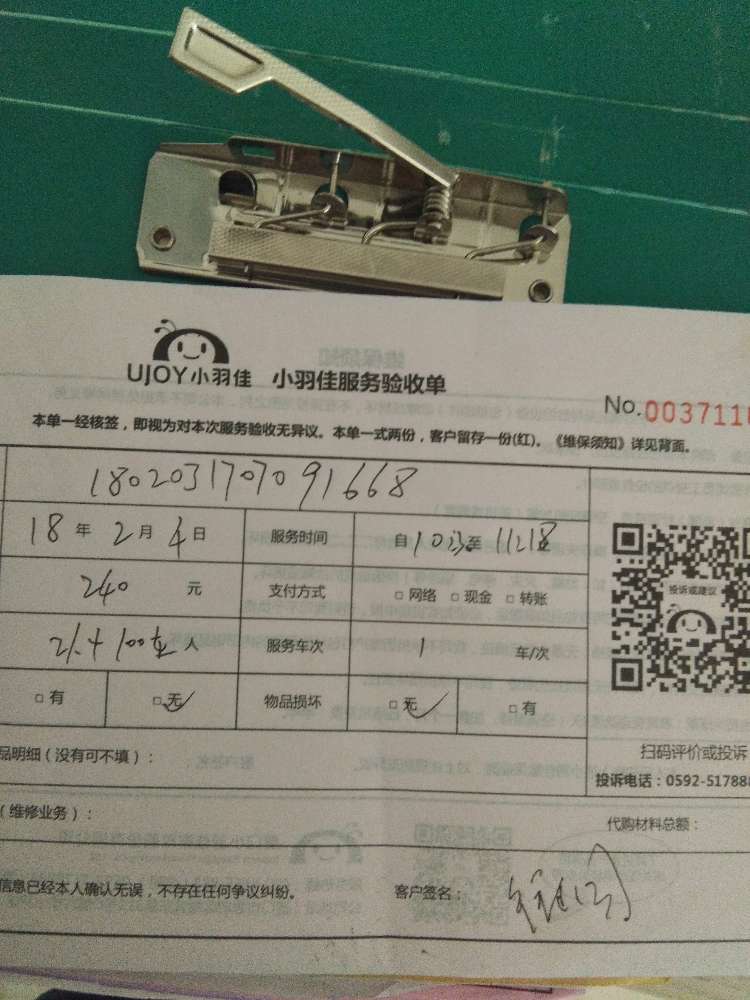 UJOY小羽佳 小羽佳服务验收单
No.0037118
本单一经核签，即视为对本次服务验收无异议。本单一式两份，客户留存一份(红)。《维保须知》详见背面。
180203170709 1668
18 年 2 月 4 日 服务时间 自 至
240 元 支付方式 □ 网络 □ 现金 □ 转账
人 服务车次 1 车/次
□ 有 □ 无 物品损坏 □ 无 □ 有
投诉或建议
品明细（没有可不填）：
扫码评价或投诉
投诉电话：0592-517888
（维修业务）：
代购材料总额：
信息已经本人确认无误，不存在任何争议纠纷。 客户签名：